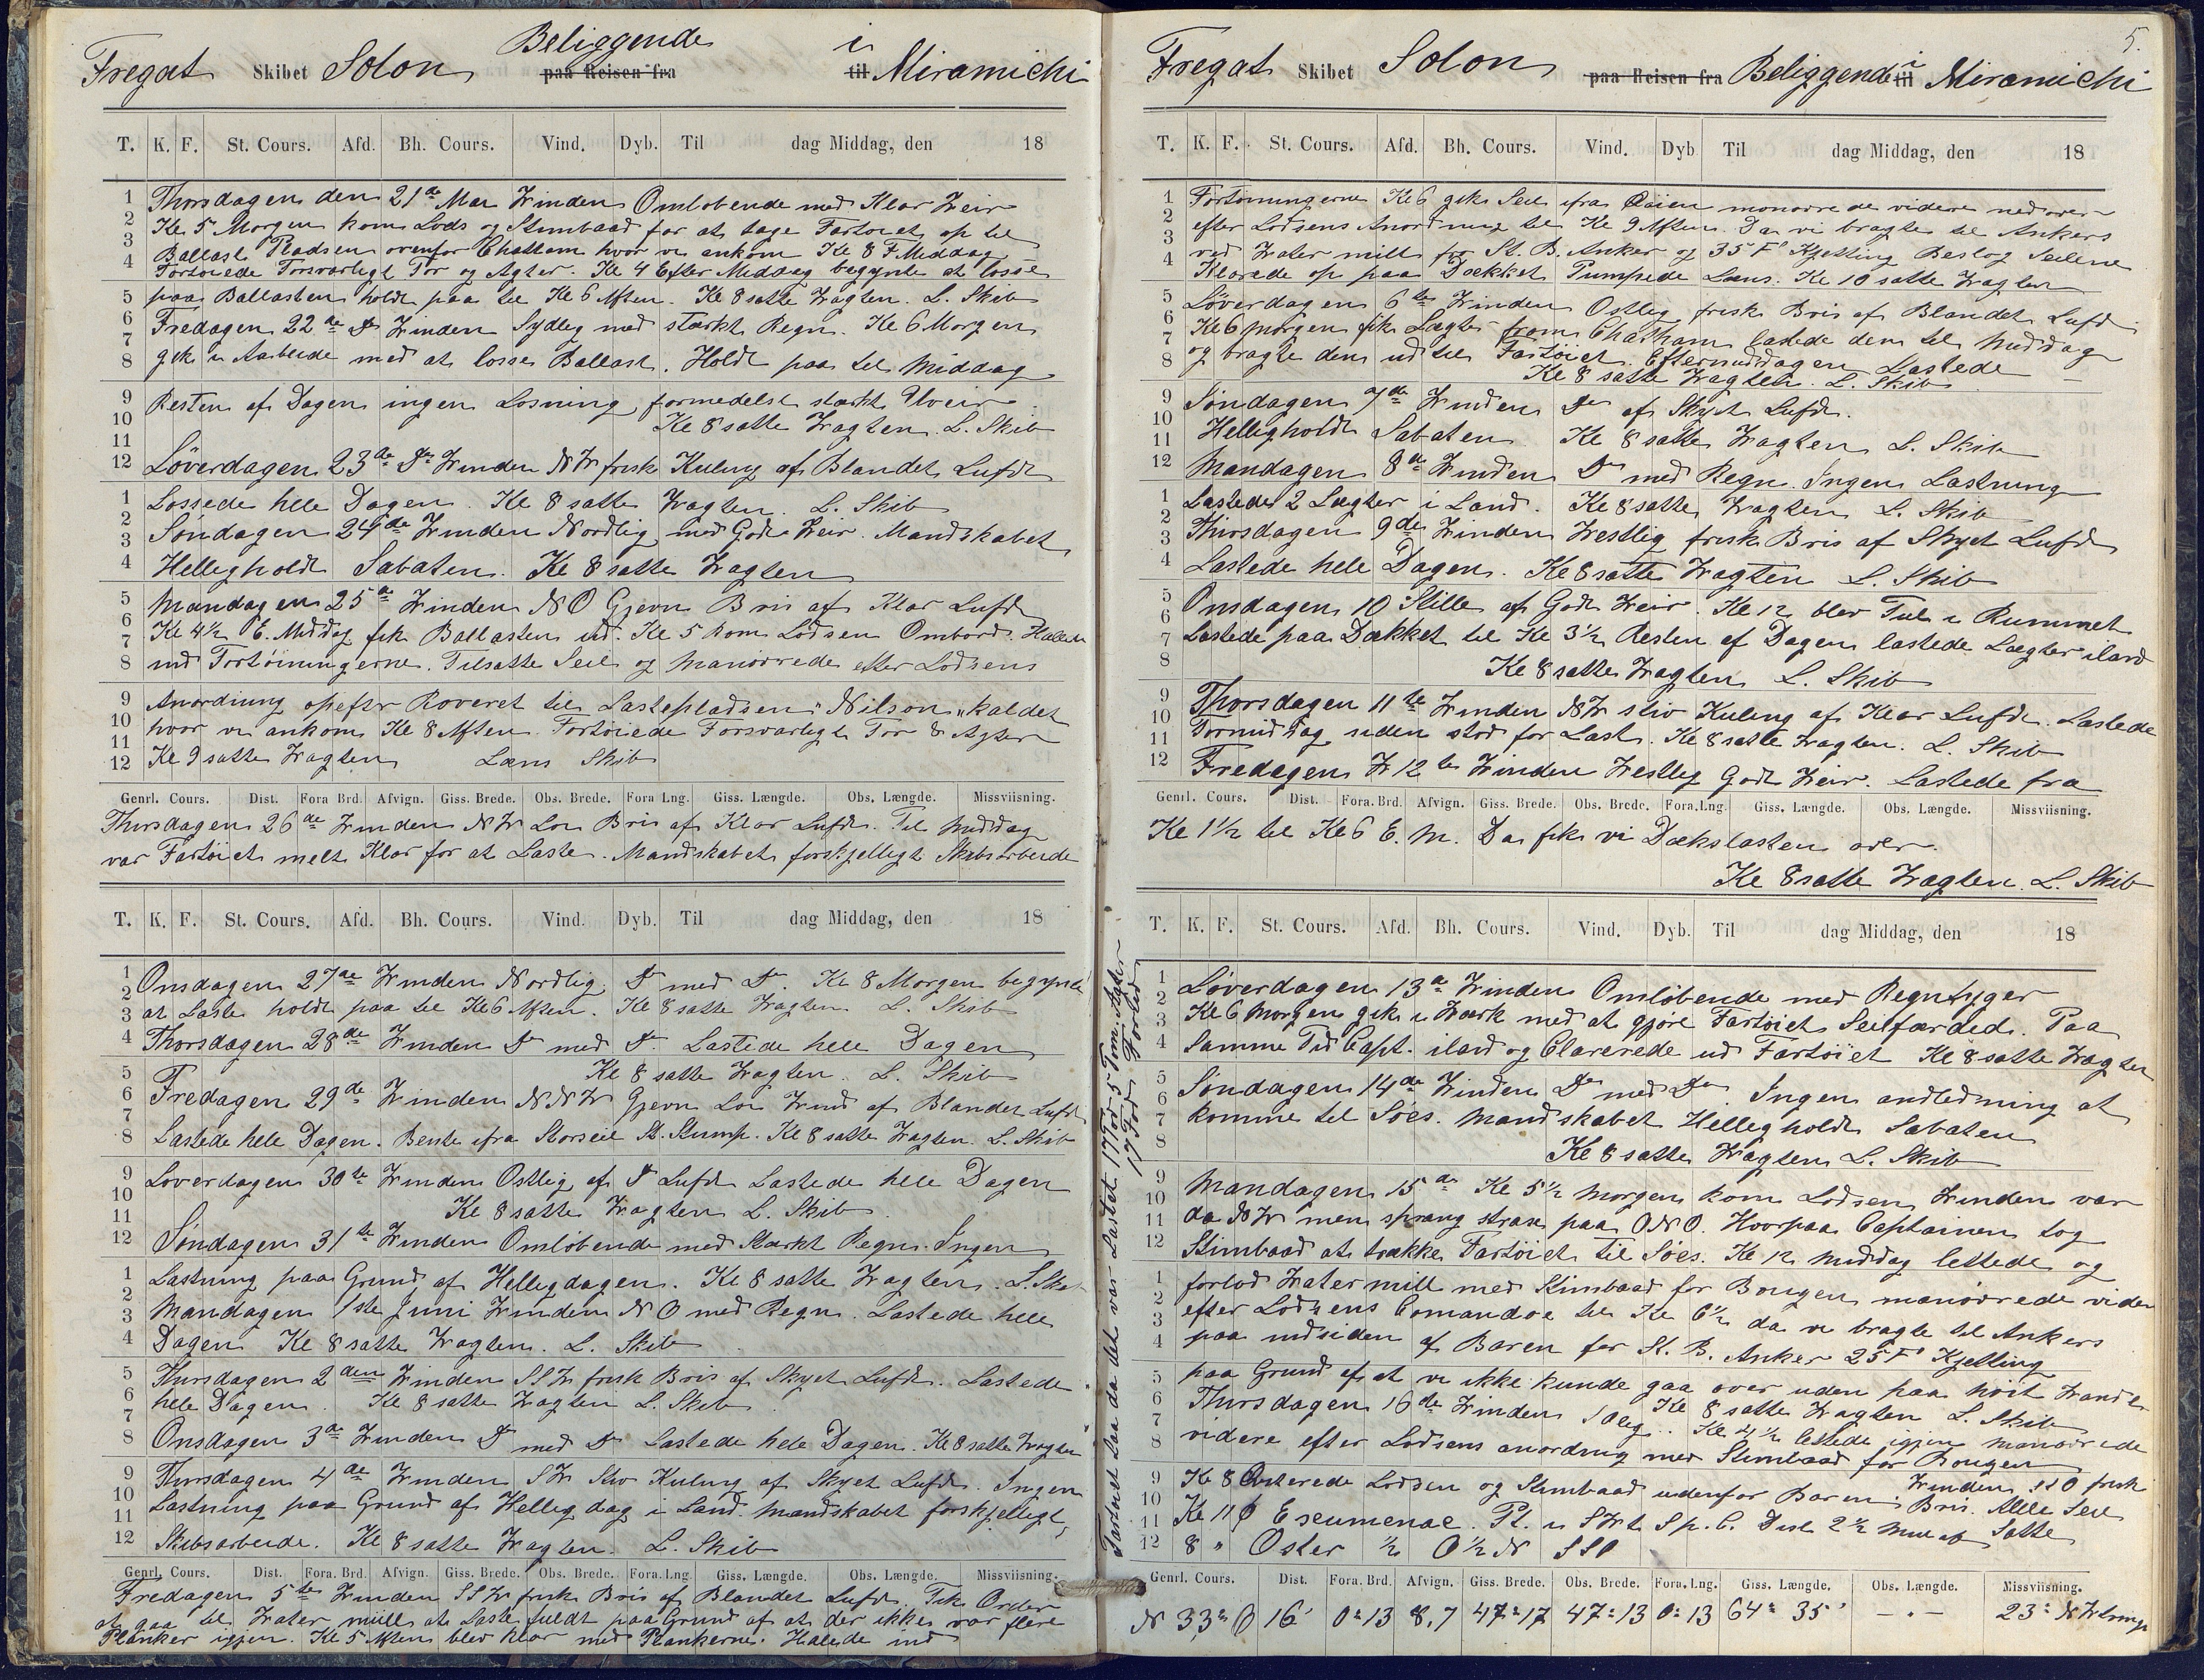 Fregat Skibet Solon Beliggende paa Reisen fra i til Miramichi
T. K. F. St. Cours. Afd. Bh. Cours. Vind. Dyb. Til dag Middag, den 18
Thorsdagen den 21de Mai Winden Omløbende med Klar Weir
Kl 5 Morgen kom Lods og Stimbaad for at tage Fartøiet op til
Ballast Pladsen ovenfor Chatham hvor vi ankom Kl 8 F. Middag
Fortøiede Forsvarligt For og Agter. Kl 4 Efter Middag begynte at losse
paa Ballasten holdt paa til Kl 6 Aften. Kl 8 satte Wagten. L. Skib
Fredagen 22de Do Winden Sydlig med stærkt Regn. Kl 6 Morgen
gik i Arbeide med at losse Ballast. Holdt paa til Middag
Resten af Dagen ingen Losning formedelst stærkt Uveir
Kl 8 satte Wagten. L. Skib
Löverdagen 23de Do Winden NW frisk Kuling af Blandet Lufdt
Lossede hele Dagen. Kl 8 satte Wagten. L. Skib
Søndagen 24de Winden Nordlig med Godt Weir. Mandskabet
Helligholdt Sabaten. Kl 8 satte Wagten
Mandagen 25de Winden NO Gjevn Bris af Klar Lufdt
Kl 4½ E. Middag fik Ballasten ud. Kl 5 kom Lodsen Ombord. Halede
ind Fortøiningerne. Tilsatte Seil og manøvrede efter Lodsens
Anordning opefter Roveret til Lastepladsen "Nilson" kaldet
hvor vi ankom Kl 8 Aften. Fortøiede Forsvarligt For & Agter
Kl 9 satte Wagten Læns Skib
Genrl. Cours. Dist. Fora Brd. Afvign. Giss. Brede. Obs. Brede. Fora Lng. Giss. Længde. Obs. Længde. Missviisning.
Thirsdagen 26de Winden NW Lør Bris af Klar Lufdt. Til Middag
var Fartøiet melt Klar for at Laste. Mandskabet forskjelligt Skibsarbeide
T. K. F. St. Cours. Afd. Bh. Cours. Vind. Dyb. Til dag Middag, den 18
Onsdagen 27de Winden Nordlig Do med Do. Kl 8 Morgen begynte
at Laste holdt paa til Kl 6 Aften. Kl 8 satte Wagten. L. Skib
Thorsdagen 28de Winden Do med Do Lastede hele Dagen
Kl 8 satte Wagten. L. Skib
Fredagen 29de Winden NNW Gjevn Lør Wind af Blandet Lufdt
Lastede hele Dagen. Bente ifra Storseil St. Stump. Kl 8 satte Wagten. L. Skib
Löverdagen 30te Winden Ostlig af Do Lufdt Lastede hele Dagen
Kl 8 satte Wagten L. Skib
Søndagen 31te Winden Omløbende med stærkt Regn. Ingen
Lastning paa Grund af Helligdagen. Kl 8 satte Wagten. L. Skib
Mandagen 1ste Juni Winden NO med Regn. Lastede hele
Dagen Kl 8 satte Wagten. L. Skib
Thirsdagen 2den Winden SSW frisk Bris af Skyet Lufdt. Lastede
hele Dagen. Kl 8 satte Wagten L. Skib
Onsdagen 3de Winden Do med Do Lastede hele Dagen. Kl 8 satte Wagten
Thorsdagen 4de Winden SW Stiv Kuling af Skyet Lufdt. Ingen
Lastning paa Grund af Hellig dag i Land. Mandskabet forskjelligt
Skibsarbeide. Kl 8 satte Wagten. L. Skib
Genrl. Cours. Dist. Fora. Brd. Afvign. Giss. Brede. Obs. Brede. Fora. Lng. Giss. Længde. Obs. Længde. Missviisning.
Fredagen 5te Winden SSW frisk Bris af Blandet Lufdt. Fik Order
at gaa til Water mill at Laste fuldt paa Grund af at der ikke var flere
Planker igjen. Kl 5 Aften blev klar med Plankerne. Halede ind
5.
Fregat Skibet Solon paa Reisen fra Beliggende i til Miramichi
T. K. F. St. Cours. Afd. Bh. Cours. Vind. Dyb Til dag Middag, den 18
Fortøiningerne Kl 6 gik Seil ifra Qaien manøvrede videre nedover
efter Lodsens Anordning til Kl 9 Aften. Da vi bragte til Ankers
ved Water mill for St. B. Anker og 35 F Kjetting Beslog Seilene
Klarede op paa Dækket Pumpede Læns. Kl 10 satte Wagten
Løverdagen 6te Winden Ostlig frisk Bris af Blandet Lufdt
Kl 6 morgen fik Lægter from Chatham lastede dem til Middag
og bragte dem ud til Fartøiet. Eftermiddagen Lastede
Kl 8 satte Wagten. L. Skib
Søndagen 7de Winden Do af Skyet Lufdt.
Helligholdt Sabaten Kl 8 satte Wagten L. Skib
Mandagen 8de Winden Do med Regn. Ingen Lastning
Lastede 2 Lægter i Land. Kl 8 satte Wagten L. Skib
Thirsdagen 9de Winden Westlig frisk Bris af Skyet Lufdt
Lastede hele Dagen. Kl 8 satte Wagten L. Skib
Onsdagen 10 Stille af Godt Weir. Kl 12 blev Ful i Rummet
Lastede paa Dækket til Kl 3½ Resten af Dagen lastede Lægter iland
Kl 8 satte Wagten L. Skib
Thorsdagen 11te Winden NW stiv Kuling af Klar Lufdt. Lastede
Formiddag siden stod for Last. Kl 8 satte Wagten. L. Skib
Fredagen 12te Winden Westlig Godt Weir. Lastede fra
Genrl. Cours. Dist. Fora. Brd. Afvign. Giss. Brede. Obs. Brede. Fora. Lng. Giss. Længde. Obs. Længde. Missviisning.
Kl 1½ til Kl 6 E. M. Da fik vi Dækslasten over.
Kl 8 satte Wagten. L. Skib
T. K. F. St. Cours. Afd. Bh. Cours. Vind. Dyb. Til dag Middag, den 18
Løverdagen 13de Winden Omløbende med Regnbyger
Kl 6 Morgen gik i Wærk med at gjøre Fartøiet Seilfærded. Paa
Samme Tid Capt. iland og Clarerede ud Fartøiet Kl 8 satte Wagten
Søndagen 14de Winden Do med Do. Ingen andledning at
komme til Søes. Mandskabet Helligholdt Sabaten
Kl 8 satte Wagten L. Skib
Mandagen 15de Kl 5½ Morgen kom Lodsen Winden var
da NW men sprang strax paa ONO. Hvorpaa Captainen tog
Stimbaad at trække Fartøiet til Søes. Kl 12 middag lettede og
forlod Water mill med Stimbaad for Bougen manøvrede videre
efter Lodsens Comandoe til Kl 6½ da vi bragte til Ankers
paa indsiden af Baren for St. B. Anker 25 F Kjetting
paa Grund af at vi ikke kunde gaa over uden paa høit Wande
Kl 8 satte Wagten L. Skib
Thirsdagen 16de Winden SOlig. Kl 4½ lettede igjen manøvrede
videre efter Lodsens anordnig med Stimbaad for Bougen
Kl 8 Qviterede Lodsen og Stimbaad udenfor Baren. Winden SSO frisk Bris. Alle Seil Satte
Kl 11 Escumenac. Pt. i SWt S p. C. Dist 2½ Mil af
8 " Oster ½ O½N SSO
Genrl. Cours. Dist. Fora. Brd. Afvign. Giss. Brede. Obs. Brede. Fora. Lng. Giss. Længde. Obs. Længde. Missviisning.
N 33° O 16' 0°13 8,7 47°17 47°13 0°13 64° 35' — " — 23° NWlring
Fartøiet Laa da det var Lastet 17 Fod 5 Tom. Agter
17 Fod Forud